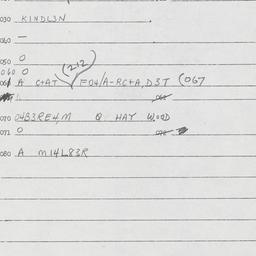 030 KINDL3N
040 —
050 0
060 0
061 A C+AT (212) F04/A-RC+A, D3T (067
070 04B3RE4,M Q HAY WOOD
071 0
080 A M14L83R